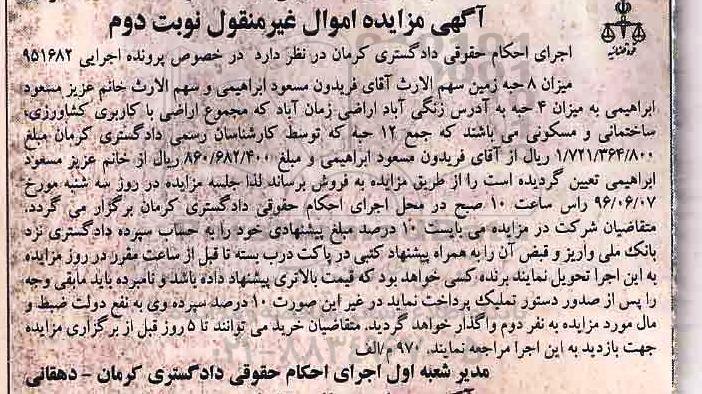 آگهی مزایده اموال غیرمنقول نوبت دوم
قوه قضائیه
اجرای احکام حقوقی دادگستری کرمان در نظر دارد در خصوص پرونده اجرایی ۹۵۱۶۸۲
میزان ۸ حبه زمین سهم الارث آقای فریدون مسعود ابراهیمی و سهم الارث خانم عزیز مسعود
ابراهیمی به میزان ۴ حبه به آدرس زنگی آباد اراضی زمان آباد که مجموع اراضی با کاربری کشاورزی،
ساختمانی و مسکونی می باشند که جمع ۱۲ حبه که توسط کارشناسان رسمی دادگستری کرمان مبلغ
۱/۷۲۱/۳۶۴/۸۰۰ ریال از آقای فریدون مسعود ابراهیمی و مبلغ ۸۶۰/۶۸۲/۴۰۰ ریال از خانم عزیز مسعود
ابراهیمی تعیین گردیده است را از طریق مزایده به فروش برساند لذا جلسه مزایده در روز سه شنبه مورخ
۹۶/۰۶/۰۷ راس ساعت ۱۰ صبح در محل اجرای احکام حقوقی دادگستری کرمان برگزار می گردد.
متقاضیان شرکت در مزایده می بایست ۱۰ درصد مبلغ پیشنهادی خود را به حساب سپرده دادگستری نزد
بانک ملی واریز و قبض آن را به همراه پیشنهاد کتبی در پاکت درب بسته تا قبل از ساعت مقرر در روز مزایده
به این اجرا تحویل نمایند برنده کسی خواهد بود که قیمت بالاتری پیشنهاد داده باشد و نامبرده باید مابقی وجه
را پس از صدور دستور تملیک پرداخت نماید در غیر این صورت ۱۰ درصد سپرده وی به نفع دولت ضبط و
مال مورد مزایده به نفر دوم واگذار خواهد گردید. متقاضیان خرید می توانند تا ۵ روز قبل از برگزاری مزایده
جهت بازدید به این اجرا مراجعه نمایند. ۹۷۰ م/الف
مدیر شعبه اول اجرای احکام حقوقی دادگستری کرمان - دهقانی